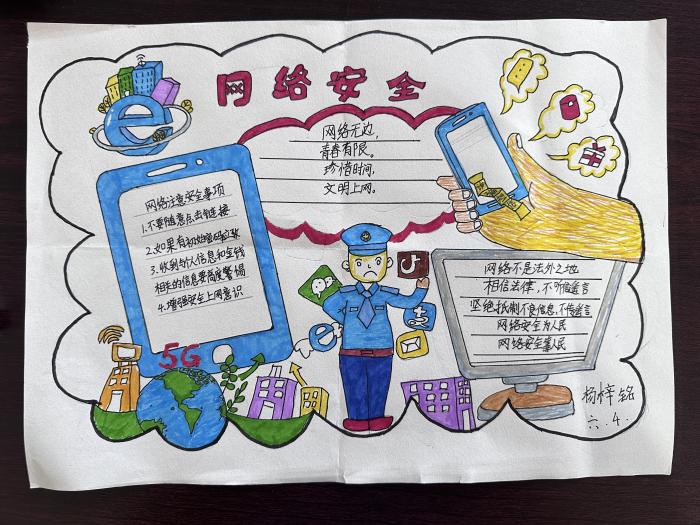 网络安全
网络无边,
青春有限。
珍惜时间,
文明上网。
网络注意安全事项
1.不要随意点击链接
2.如果有初始密码应改
3.收到个人信息和金钱
相关的信息要高度警惕
4.增强安全上网意识
5G
网络不是法外之地
相信法律,不听信谣言
坚绝抵制不良信息,不传谣言
网络安全为人民
网络安全靠人民
杨梓铭
六.4.